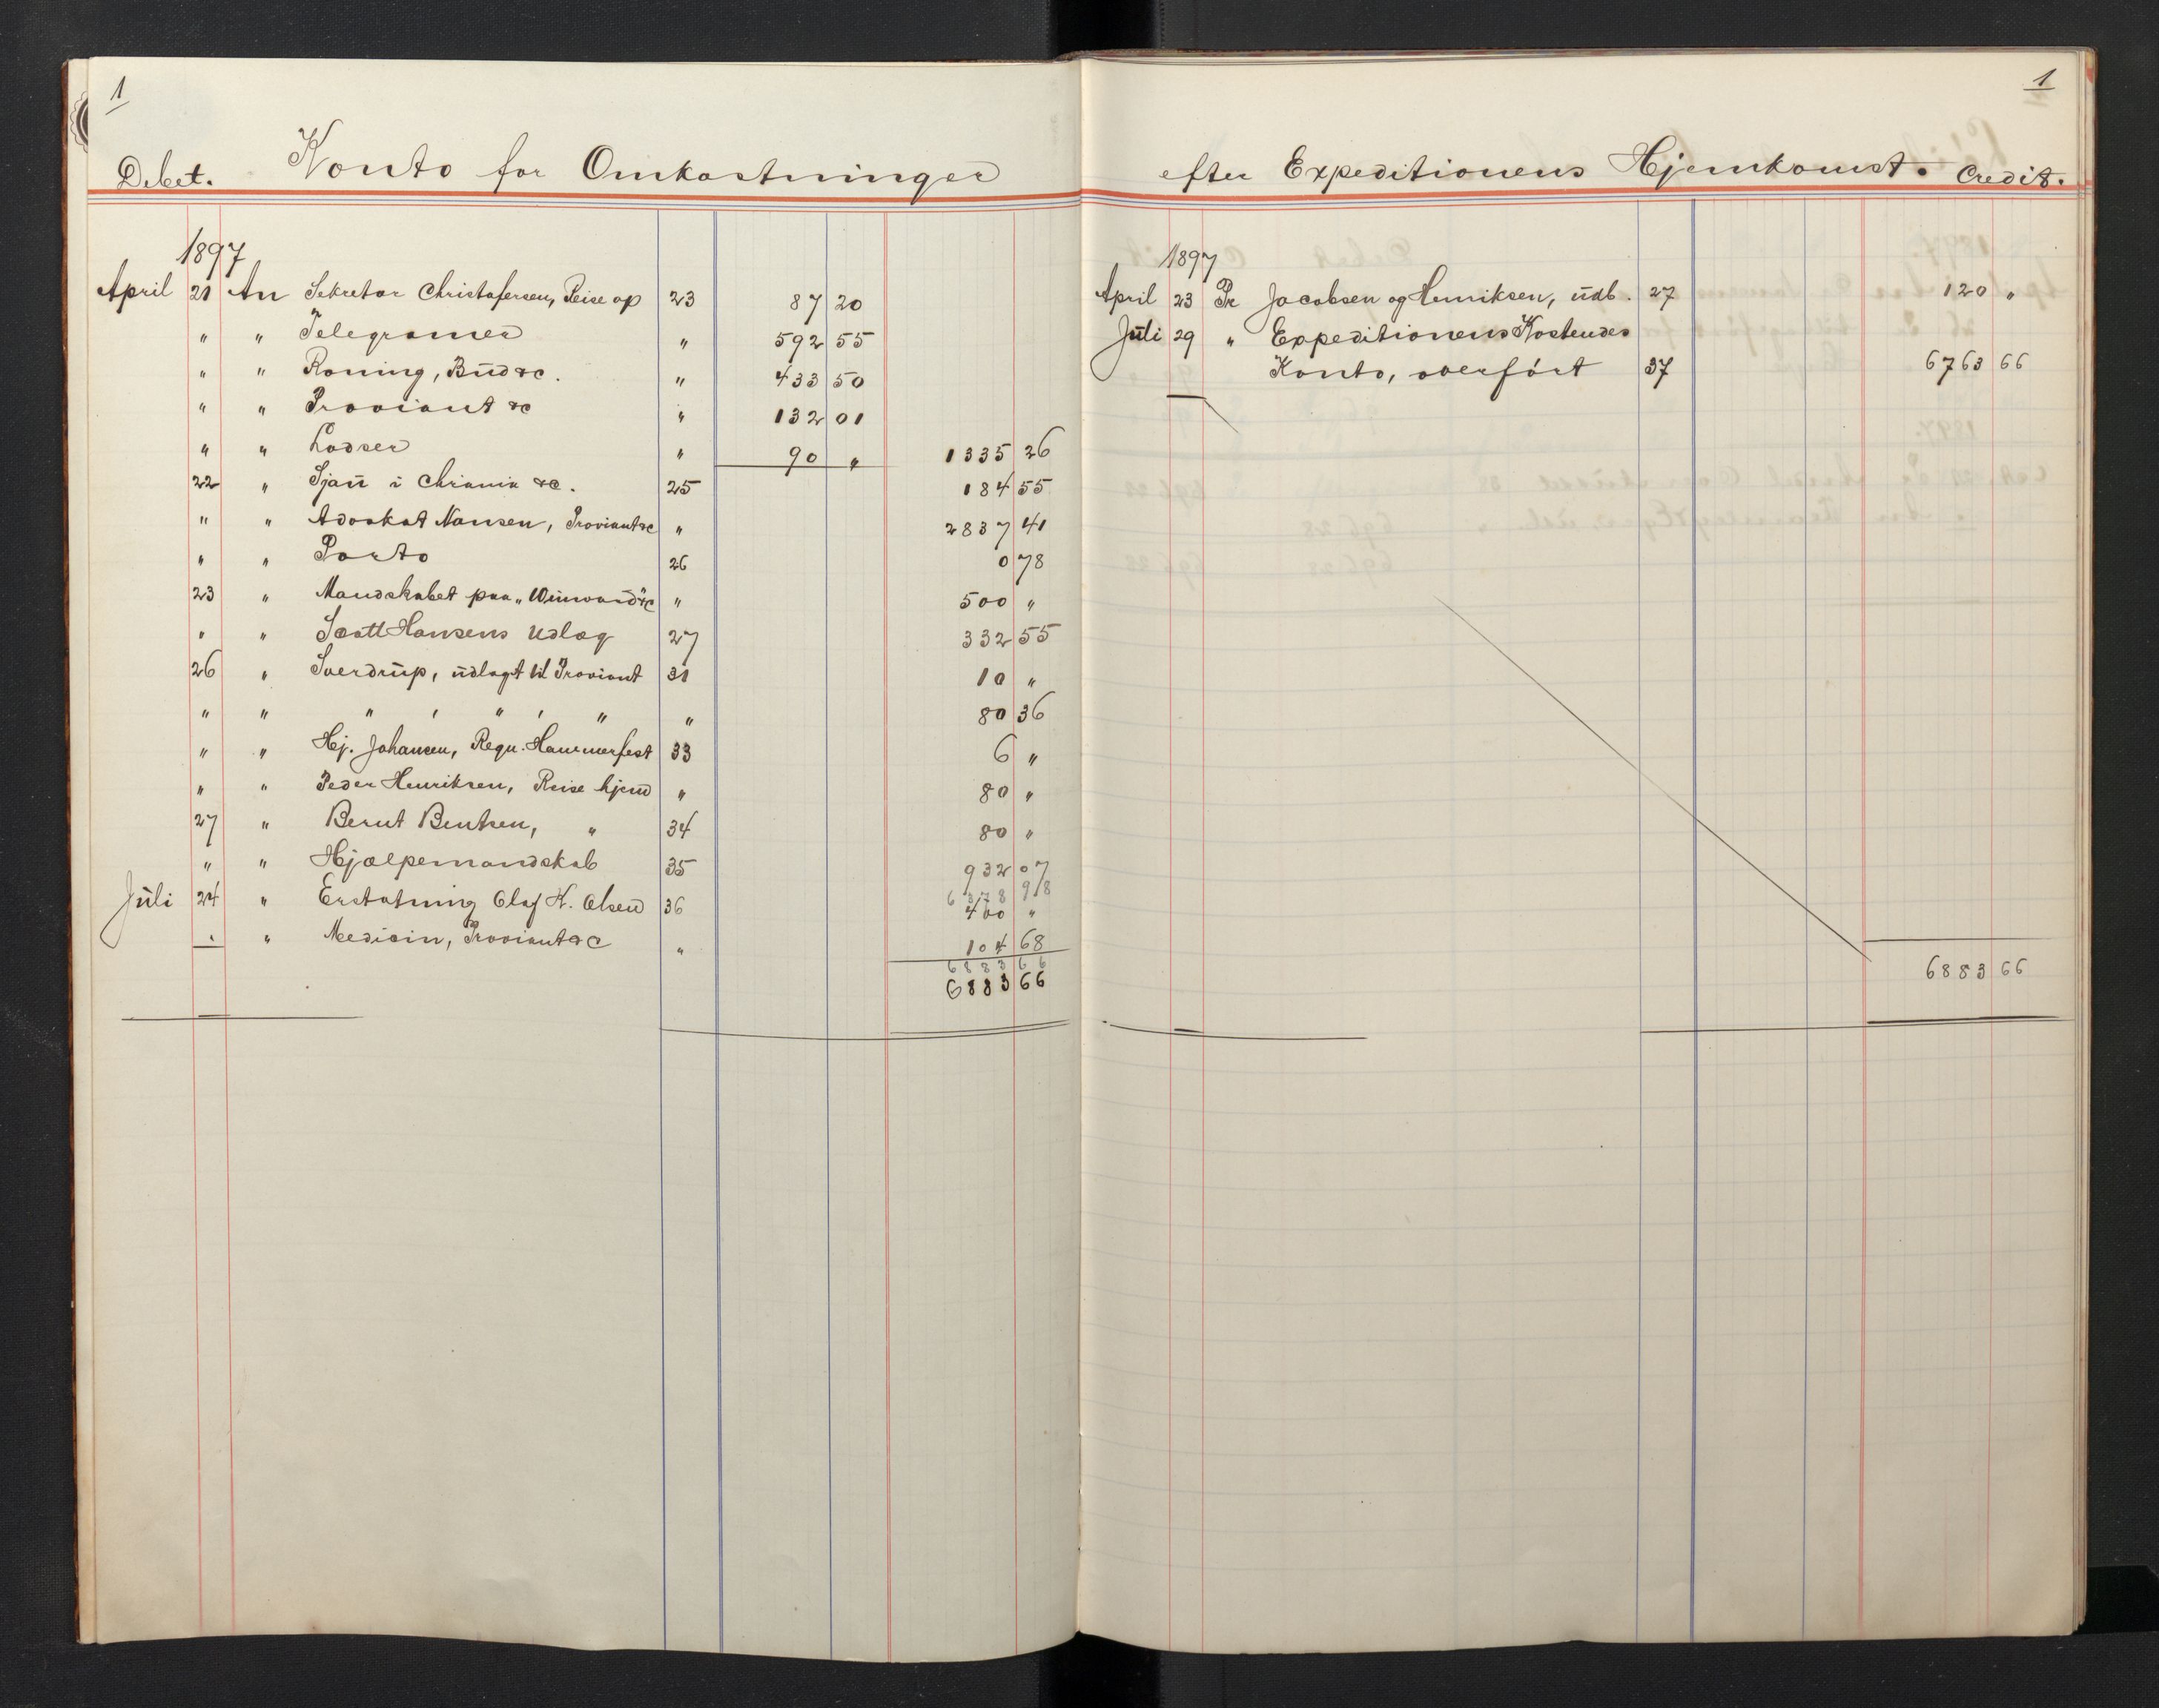 1
Debet. Konto for Omkostninger
1897
April 21 An Sekretær Christofersen, Reise op 23 87 20
" " Telegramer " 592 55
" " Roning, Bud &c. " 433 50
" " Proviant &c " 132 01
" " Lodser " 90 " 1335 26
22 " Sjau i Chriania &c. 25 184 55
" " Advokat Nansen, Proviant &c " 2837 41
" " Porto 26 0 78
23 " Mandskabet paa "Winward" &c " 500 "
" " Scott Hansens Udlæg 27 332 55
26 " Sverdrup, udlagt til Proviant 31 10 "
" " " , " , " " 80 36
" " Hj. Johansen, Regn. Hammerfest 33 6 "
" " Peder Henriksen, Reise hjem " 80 "
27 " Bernt Bentsen, " 34 80 "
" " Hjælpemandskab 35 932 07
6378 98
Juli 24 " Erstatning Olaf K. Olsen 36 400 "
" " Medicin, Proviant &c " 104 68
6883 66
6883 66
1
efter Expeditionens Hjemkomst. Credit.
1897
April 23 Pr Jacobsen og Henriksen, udb. 27 120 "
Juli 29 " Expeditionens Kostendes
Konto, overført 37 6763 66
6883 66